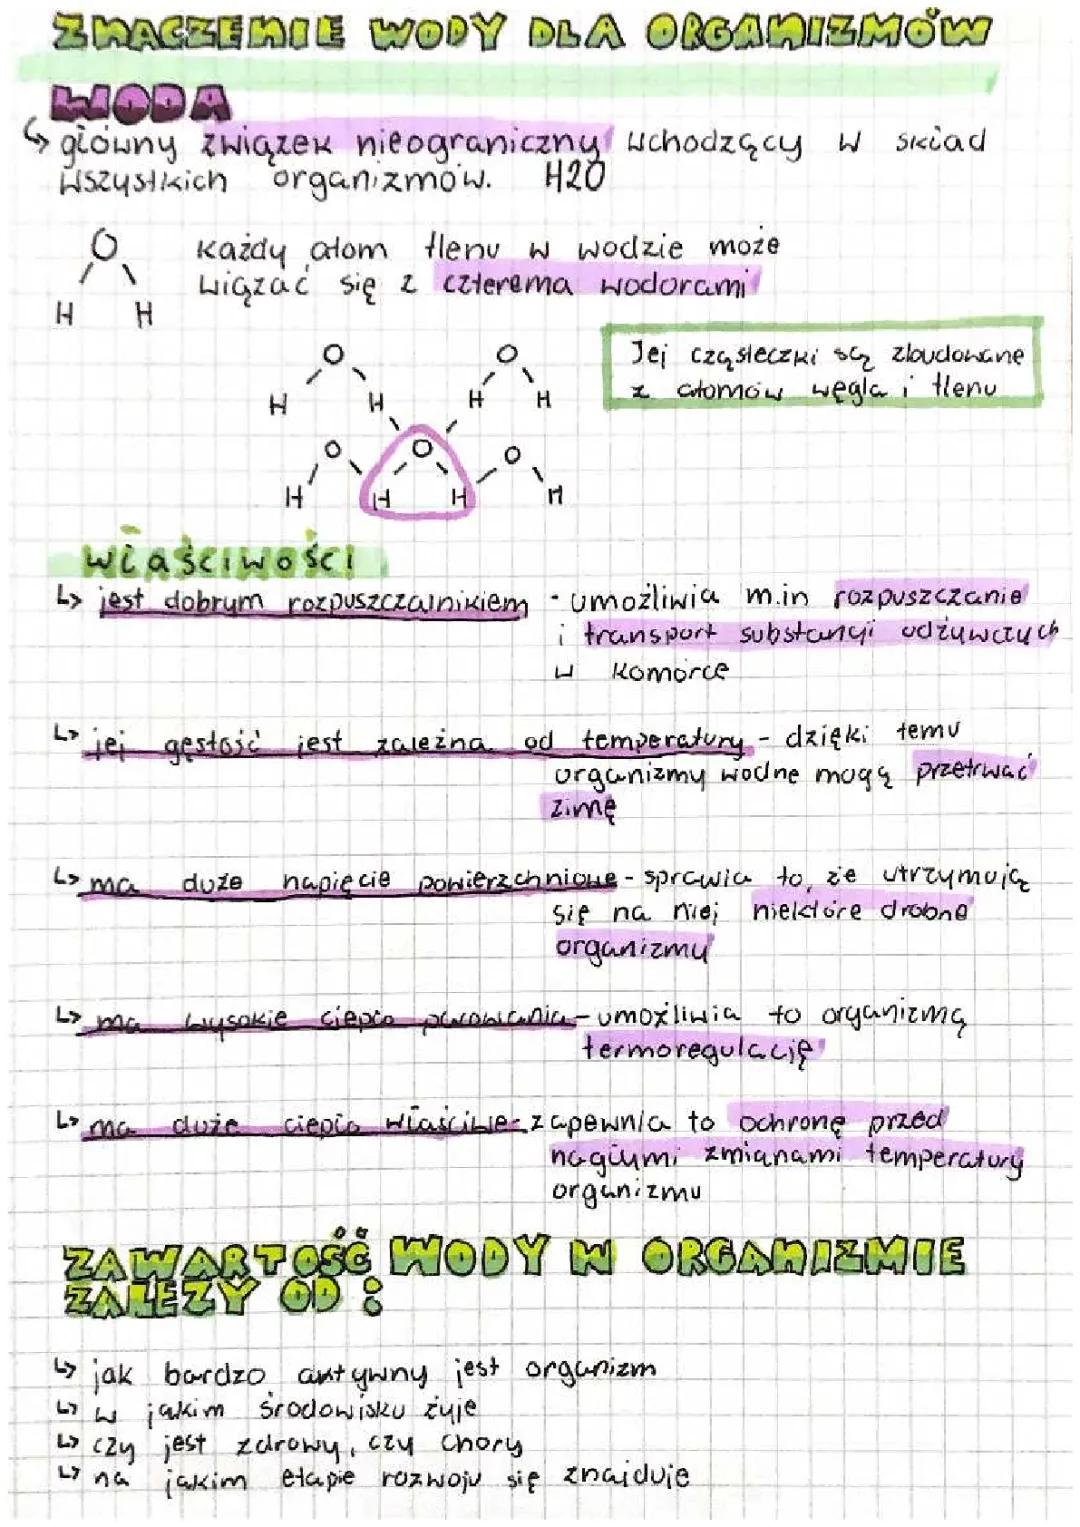 ZNACZENIE WODY DLA ORGANIZMÓW
WODA
↳ główny związek nieograniczny wchodzący w skład
wszystkich organizmów. H2O
O
H H
każdy atom tlenu w wodzie może
wiązać się z czterema wodorami
Jej cząsteczki są zbudowane
z atomów węgla i tlenu
O O
H H H H
O O O
H H H H
właściwości
↳ jest dobrym rozpuszczalnikiem - umożliwia m.in rozpuszczanie
i transport substancji odżywczych
w komórce
↳ jej gęstość jest zależna od temperatury - dzięki temu
organizmy wodne mogą przetrwać
zimę
↳ ma duże napięcie powierzchniowe - sprawia to, że utrzymują
się na niej niektóre drobne
organizmy
↳ ma wysokie ciepło parowania - umożliwia to organizmą
termoregulację
↳ ma duże ciepło właściwe - zapewnia to ochronę przed
nagłymi zmianami temperatury
organizmu
ZAWARTOŚĆ WODY W ORGANIZMIE
ZALEŻY OD :
↳ jak bardzo aktywny jest organizm
↳ w jakim środowisku żyje
↳ czy jest zdrowy, czy chory
↳ na jakim etapie rozwoju się znajduje